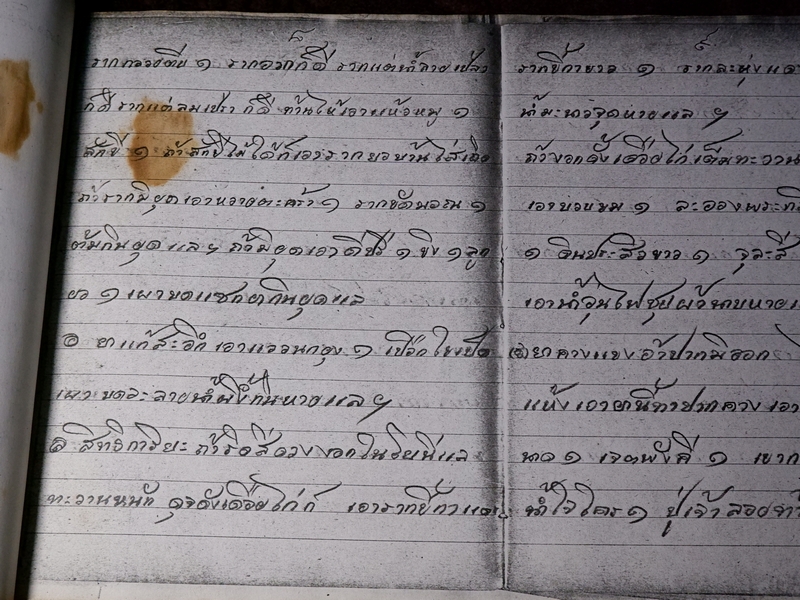 ๘
รากกล้วยตีบ ๑ รากอวกก็ดี รากแต่น้ำลายเปล่า
ก็ดี รากแต่ลมเปรา ก็ดี ท่านให้เอาแห้วหมู ๑
สักขี ๑ ถ้าสักขีไม่ได้ก็เอารากยอบ้านใส่เถิด
ถ้ารากมิยุดเอาหวายตะคร้า ๑ รากขัดมอณ ๑
ต้มกินยุดแลฯ ถ้ามิยุดเอาดีปรี ๑ ขิง ๑ ลูก
ยอ ๑ เผาบดแซกยากินยุดแล
๏ ยาแก้สะอึก เอาแววนกยุง ๑ เปลือกไข่เป็ด
เผา บดละลายน้ำผึ้งกินหายแลฯ
๏ สิทธิการิยะ ถ้าริดสีดวงงอกในโยนีแล
ทะวานหนัก ดุจดังเดือยไก่ก็ เอารากขี้กาแดง
๙
รากขี้กาขาว ๑ รากละหุ่งแดง
น้ำมะนาวจุดหายแลฯ
ถ้างอกดั่งเดือยไก่เต็มทะวาน
เอาบอระ ๑ ละอองพระ
๑ ดินประสิวขาว ๑ จุละสี
เอาน้ำอุ่นไฟชุบผ้านาบหาย
ยาดวงแขงอ้าปากมิออก
แห้ง เอายานี้ทาปากดวง เอา
นาด ๑ เจตพังคี ๑ เขาก
น้ำใจใคร ๑ ปู่เจ้าลอยท่า